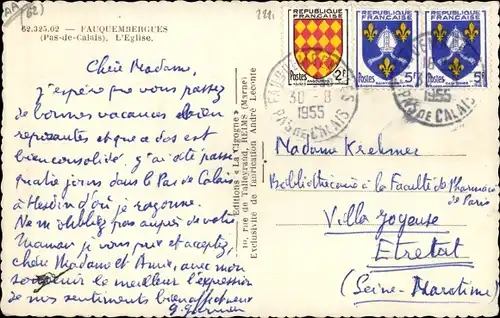 62.325.02 - FAUQUEMBERGUES
(Pas-de-Calais). L'Eglise.
Chère Madame,
j'espère que vous passez
de bonnes vacances bien
reposantes et que dos est
bien consolidé. j'ai été passer
quatre jours dans le Pas de Calais
à Hesdin d'où je rayonne.
Ne m'oubliez pas auprès de votre
Maman je vous prie et acceptez,
chère Madame et Amie, avec mon
souvenir le meilleur l'expression
de mes sentiments bien affectueux
Editions "La Cigogne"
10, rue de Talleyrand, REIMS (Marne)
Exclusivité de fabrication André Leconte
REPUBLIQUE FRANÇAISE
Postes 2F
ANGOUMOIS
REPUBLIQUE FRANÇAISE
Postes 5F
REPUBLIQUE FRANÇAISE
Postes 5F
30 - 8
1955
PAS DE CALAIS
1955
PAS DE CALAIS
Madame Krehmer
Bibliothécaire à la Faculté de Pharmacie
de Paris
Villa Joyeuse
Etretat
(Seine-Maritime)